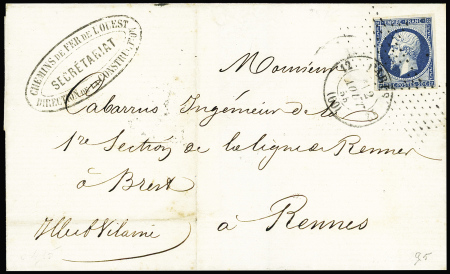 CHEMINS DE FER DE L'OUEST
SECRÉTARIAT
DIRECTION DE LA CONSTRUCTION
EMPIRE FRANC
Monsieur
Cabarrus Ingénieur de la
1re Section de la ligne de Rennes
à Brest
à Rennes
Ille et Vilaine
95